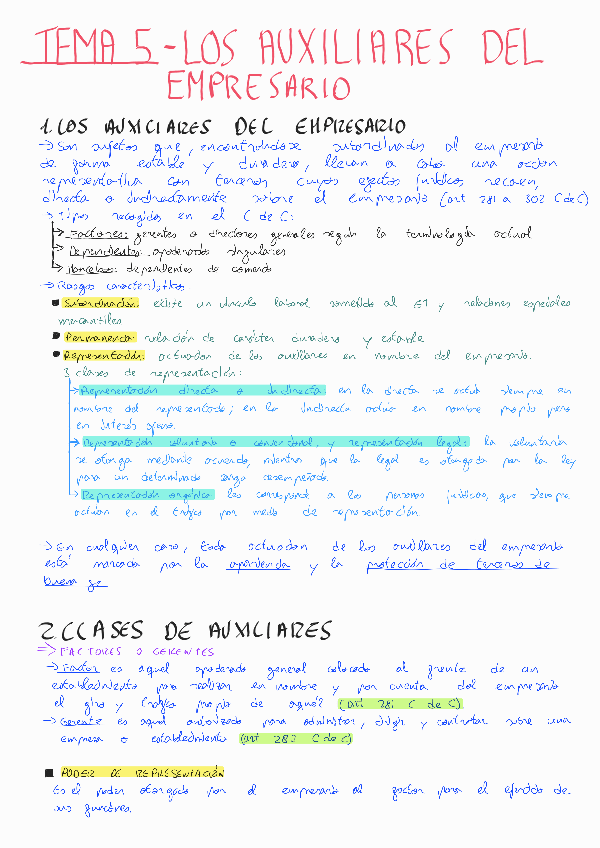 TEMA 5 - LOS AUXILIARES DEL
EMPRESARIO
1. LOS AUXILIARES DEL EMPRESARIO
→ Son sujetos que, encontrándose subordinados al empresario
de forma estable y duradera, llevan a cabo una acción
representativa con terceros cuyos efectos jurídicos recaen,
directa o indirectamente sobre el empresario (art 281 a 302 C de C)
→ Tipos recogidos en el C de C:
→ Factores: gerentes o directores generales según la terminología actual
→ Dependientes: apoderados singulares
→ Mancebos: dependientes de comercio
→ Rasgos característicos
■ Subordinación: existe un vínculo laboral sometido al ET y relaciones especiales
mercantiles
● Permanencia: relación de carácter duradero y estable
● Representación: actuación de los auxiliares en nombre del empresario.
3 clases de representación:
→ Representación directa o indirecta: en la directa se actúa siempre en
nombre del representado; en la indirecta actúa en nombre propio pero
en interés ajeno.
→ Representación voluntaria o convencional y representación legal: la voluntaria
se otorga mediante acuerdo, mientras que la legal es otorgada por la ley
para un determinado cargo desempeñado.
→ Representación orgánica: les corresponde a las personas jurídicas, que siempre
actúan en el tráfico por medio de representación
→ En cualquier caso, toda actuación de los auxiliares del empresario
está marcada por la apariencia y la protección de terceros de
buena fe
2. CLASES DE AUXILIARES
⇒ FACTORES O GERENTES
→ Factor es aquel apoderado general colocado al frente de un
establecimiento para realizar en nombre y por cuenta del empresario
el giro y tráfico propio de aquél (art 281 C de C)
→ Gerente es aquel autorizado para administrar, dirigir y contratar sobre una
empresa o establecimiento (art 283 C de C)
■ PODER DE REPRESENTACIÓN
Es el poder otorgado por el empresario al factor para el ejercicio de
sus funciones.